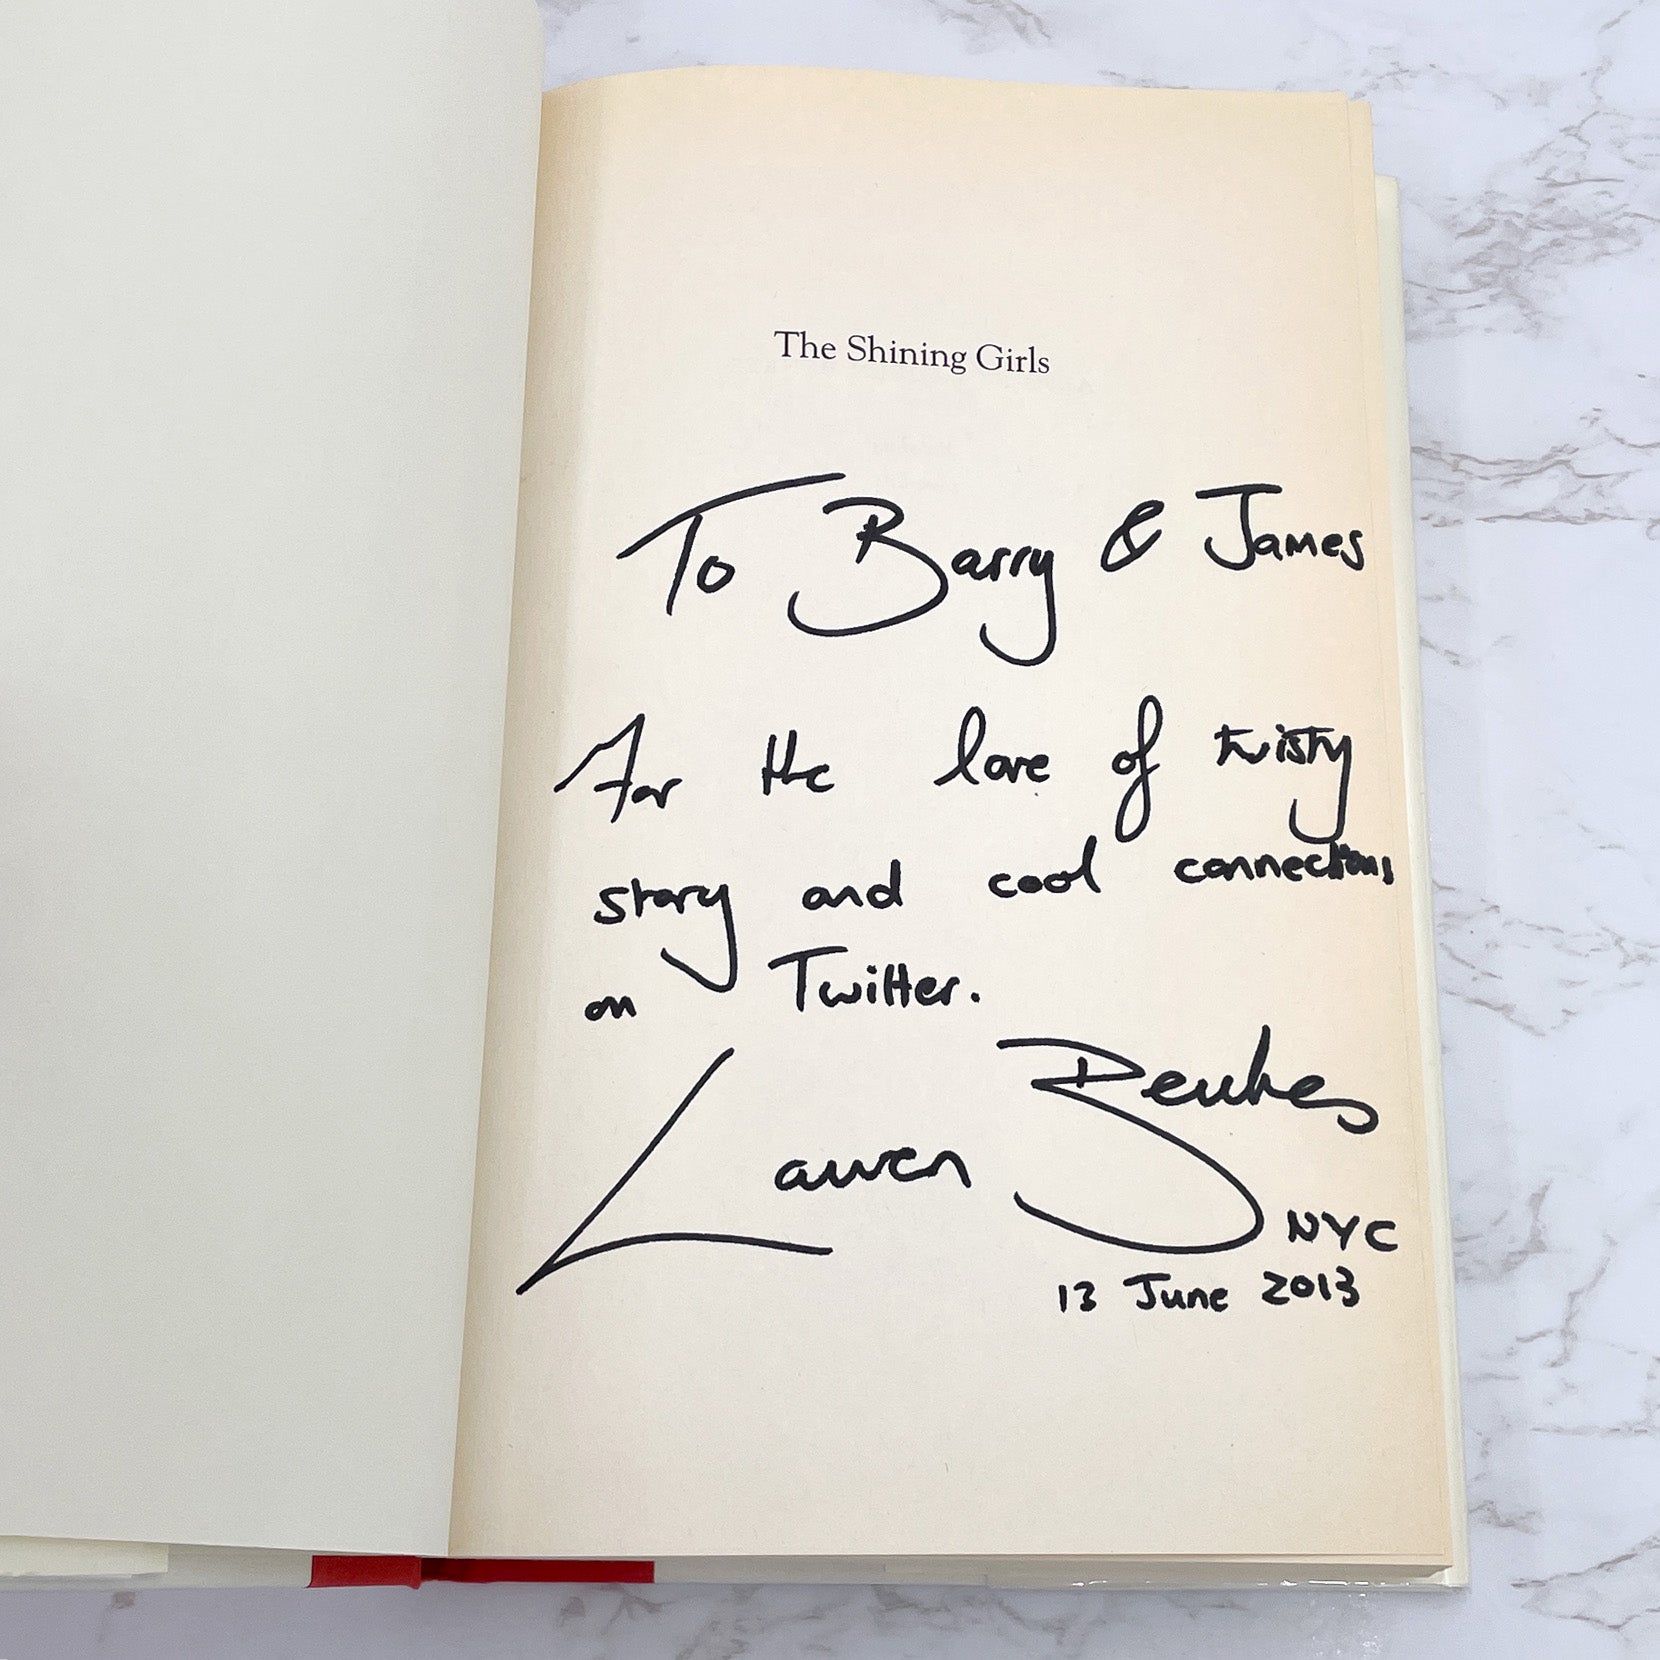 The Shining Girls
To Barry & James
For the love of twisty
story and cool connections
on Twitter.
Lauren Beukes
NYC
13 June 2013